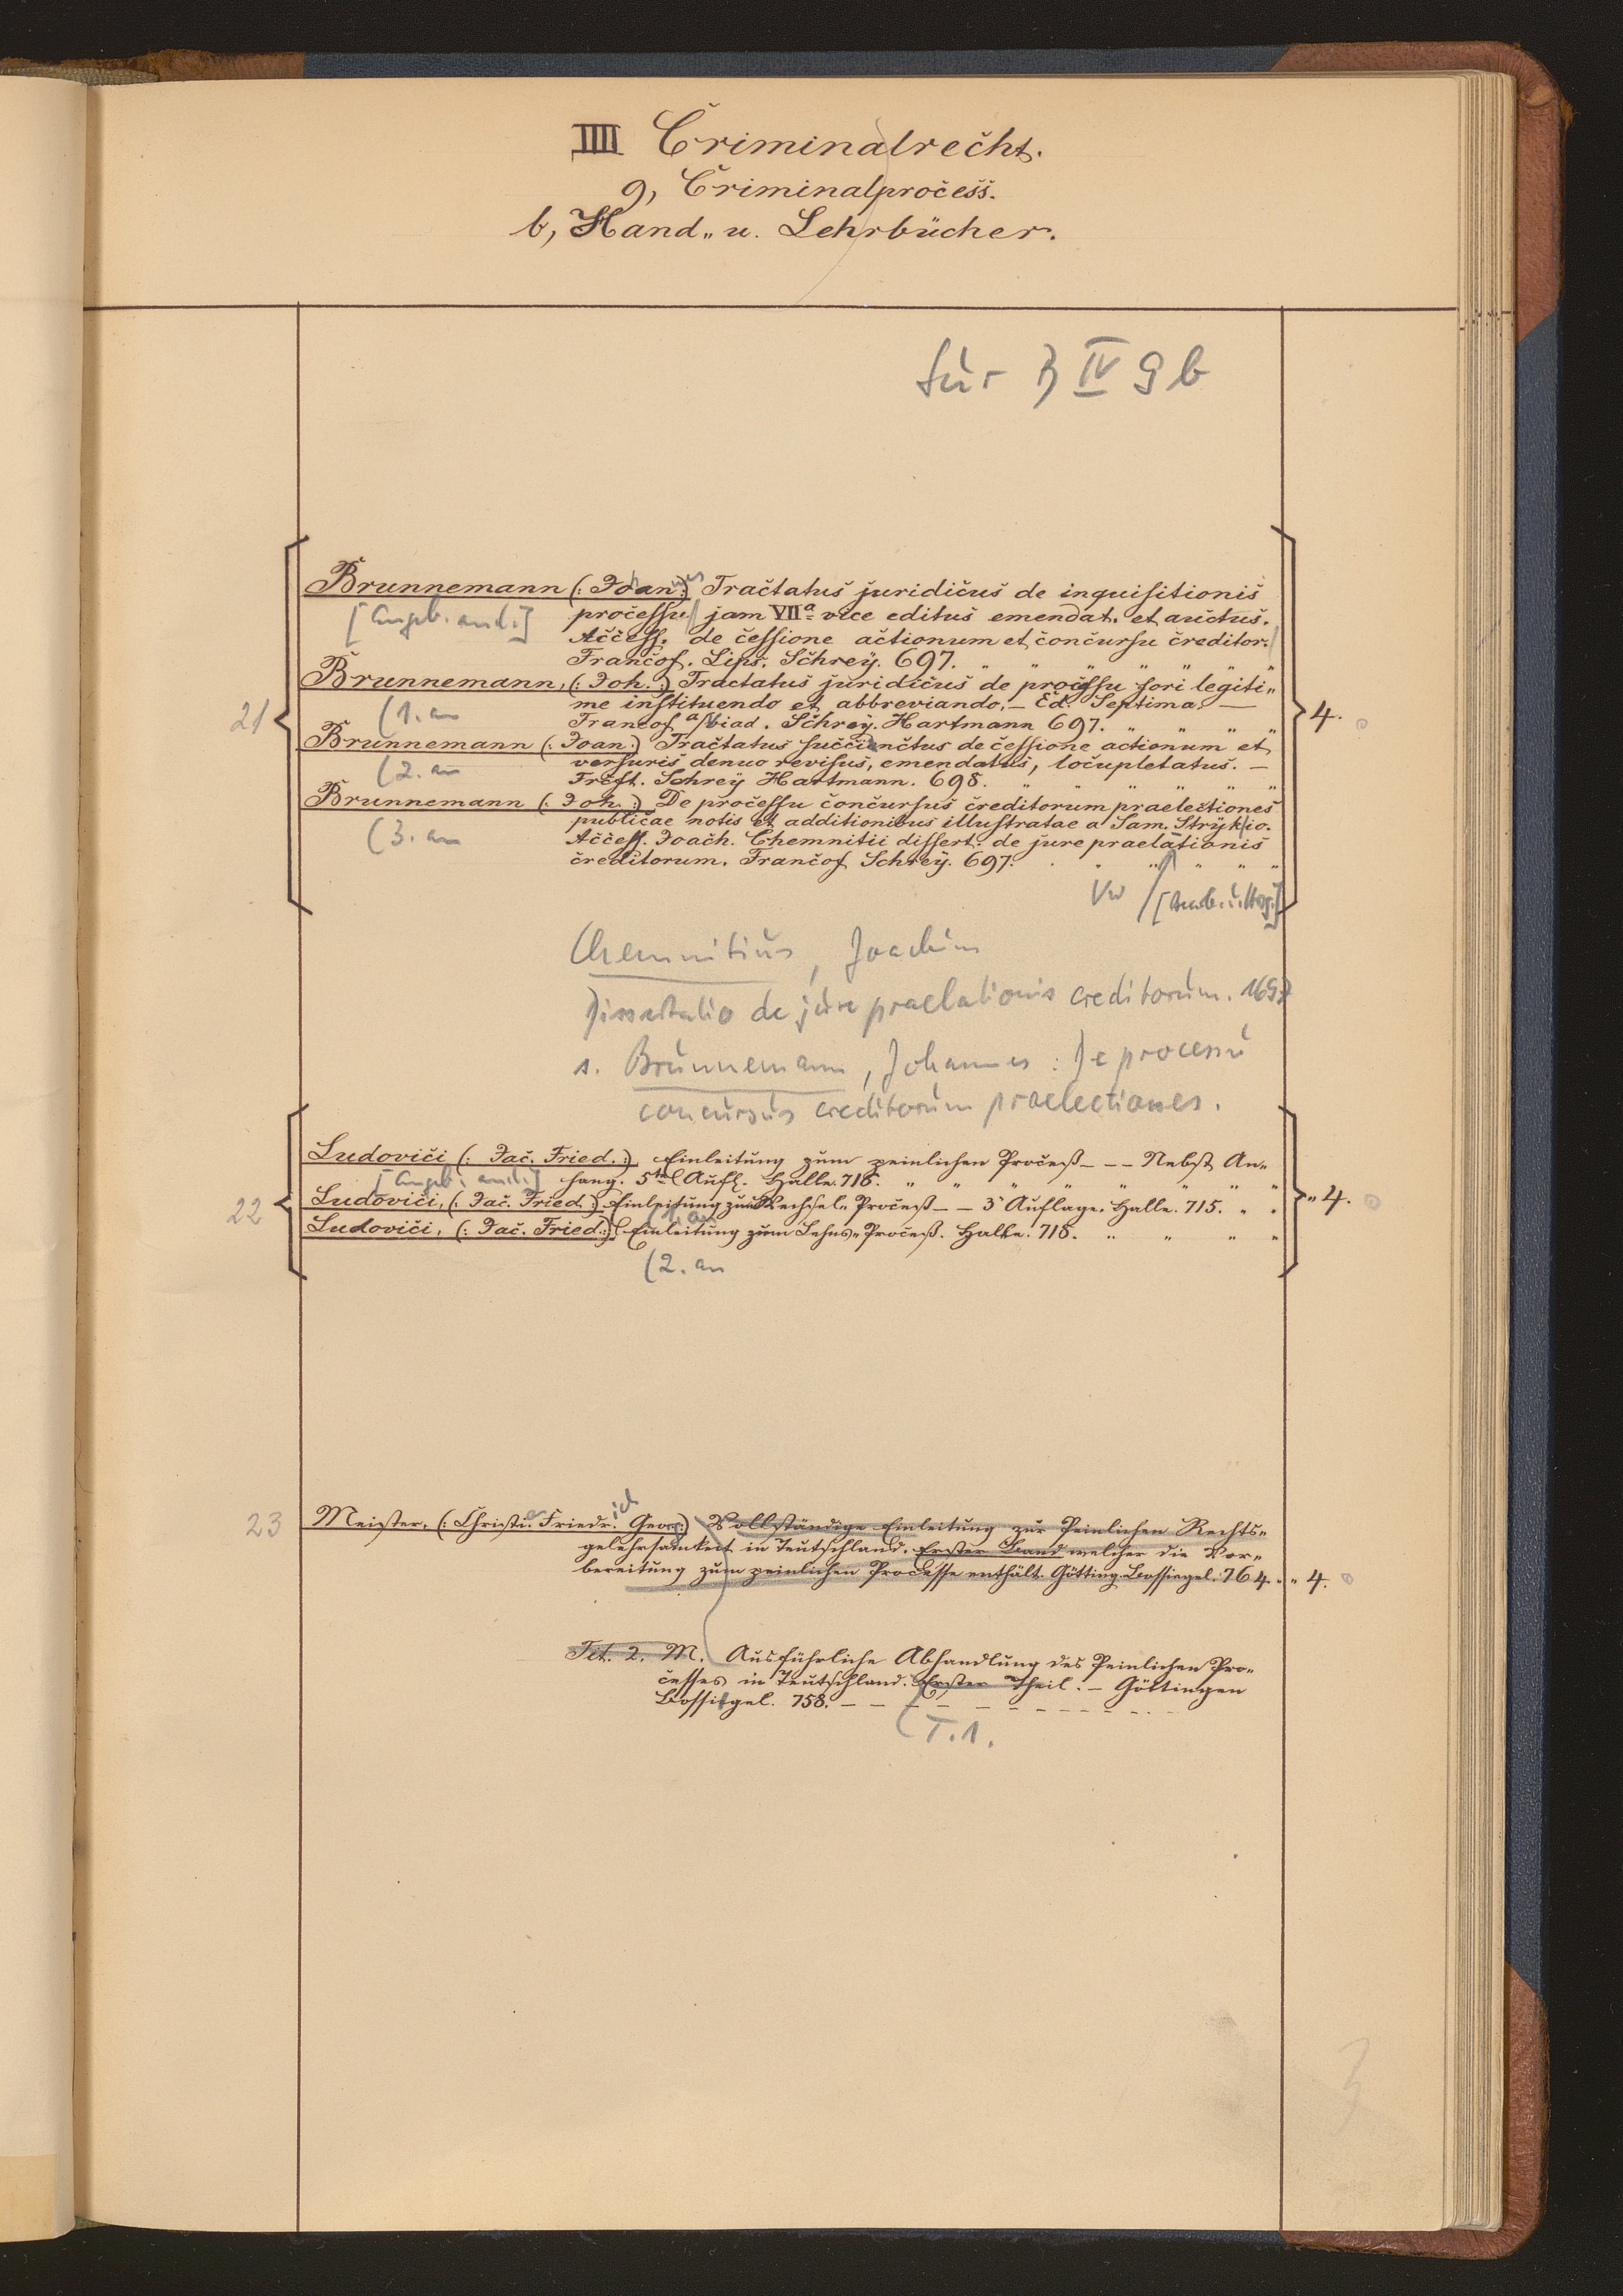 IIII Criminalrecht.
9, Criminalprocess.
b, Hand„ u. Lehrbücher.
für B IV 9 b
Brunnemann (: Joan :) Tractatus juridicus de inquisitionis
[Angeb. and.:] processu jam VIIa vice editus emendat. et auctus.
Access. de cessione actionum et concursu creditor.
Francof. Lips. Schrey. 697. „ „ „ „ „ „ „
Brunnemann, (: Joh. :) Tractatus juridicus de processu fori legiti„
me instituendo et abbreviando. — Ed. Septima. —
21 (1. an Francof a/Viad. Schrey. Hartmann 697. „ „ „ „ 4.
Brunnemann (: Joan :) Tractatus succinctus de cessione actionum et
(2. an versuris denuo revisus, emendatus, locupletatus. —
Frcft. Schrey Hartmann. 698. „ „ „ „ „ „
Brunnemann (: Joh. :) De processu concursus creditorum praelectiones
publicae notis et additionibus illustratae a Sam. Strykio.
(3. an Access. Joach. Chemnitii dissert. de jure praelationis
creditorum. Francof Schrey. 697. „ „ „ „
Vw
Chemnitius, Joachim
Dissertatio de jure praelationis creditorum. 1697
s. Brunnemann, Johannes: De processu
concursus creditorum praelectiones.
Ludovici (: Jac. Fried. :) Einleitung zum peinlichen Proceß — — — Nebst An„
[Angeb. and.:] hang. 5te Aufl. Halle. 718. „ „ „ „ „ „ „ „
22 Ludovici, (: Jac. Fried :) Einleitung zum Wechsel„ Proceß — — 3 Auflage. Halle. 715. „ „ „ 4.
(1. an
Ludovici, (: Jac. Fried. :) Einleitung zum Lehns„ Proceß. Halle. 718. „ „ „ „
(2. an
23 Meister, (: Christi. Friedrich Geor :) Vollständige Einleitung zur Peinlichen Rechts„
gelehrsamkeit in Teutschland. Erster Band welcher die Vor„
bereitung zum peinlichen Processe enthält. Götting. Bossiegel. 764. „ „ 4.
Tit. 2. M. Ausführliche Abhandlung des Peinlichen Pro„
cesses in Teutschland. Erster Theil. — Göttingen
Bossiegel. 758. — — — — — — — — —
(T. 1.